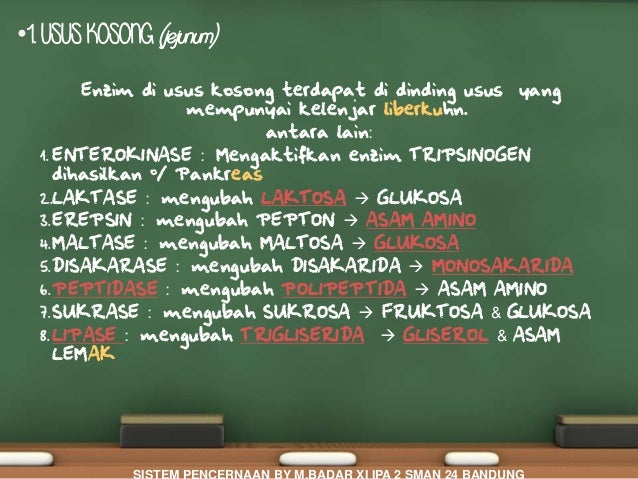 •1. USUS KOSONG (jejunum)
Enzim di usus kosong terdapat di dinding usus yang
mempunyai kelenjar liberkuhn.
antara lain:
1. ENTEROKINASE : Mengaktifkan enzim TRIPSINOGEN
dihasilkan o/ Pankreas
2. LAKTASE : mengubah LAKTOSA → GLUKOSA
3. EREPSIN : mengubah PEPTON → ASAM AMINO
4. MALTASE : mengubah MALTOSA → GLUKOSA
5. DISAKARASE : mengubah DISAKARIDA → MONOSAKARIDA
6. PEPTIDASE : mengubah POLIPEPTIDA → ASAM AMINO
7. SUKRASE : mengubah SUKROSA → FRUKTOSA & GLUKOSA
8. LIPASE : mengubah TRIGLISERIDA → GLISEROL & ASAM
LEMAK
SISTEM PENCERNAAN BY M.BADAR XI IPA 2 SMAN 24 BANDUNG